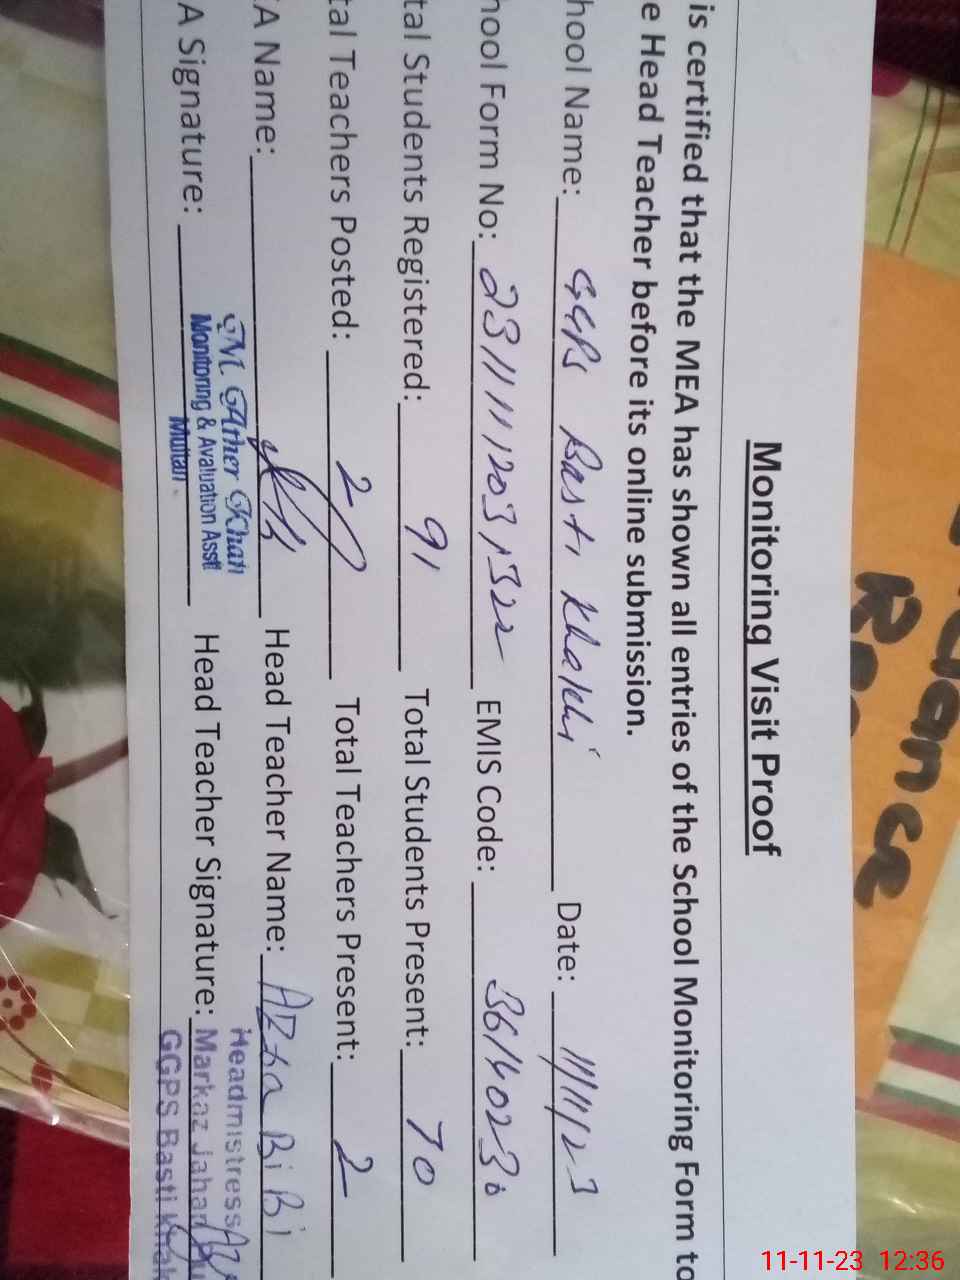 Monitoring Visit Proof
is certified that the MEA has shown all entries of the School Monitoring Form to
e Head Teacher before its online submission.
hool Name: GGPS Basti Khakhi Date: 11/11/23
hool Form No: EMIS Code:
tal Students Registered: 91 Total Students Present: 70
tal Teachers Posted: 2 Total Teachers Present: 2
A Name: Head Teacher Name: Azra Bi Bi
A Signature: Head Teacher Signature:
M. Ather Khan
Monitoring & Avaluation Asstt
Multan
Headmistress
Markaz Jahan
GGPS Basti
11-11-23 12:36